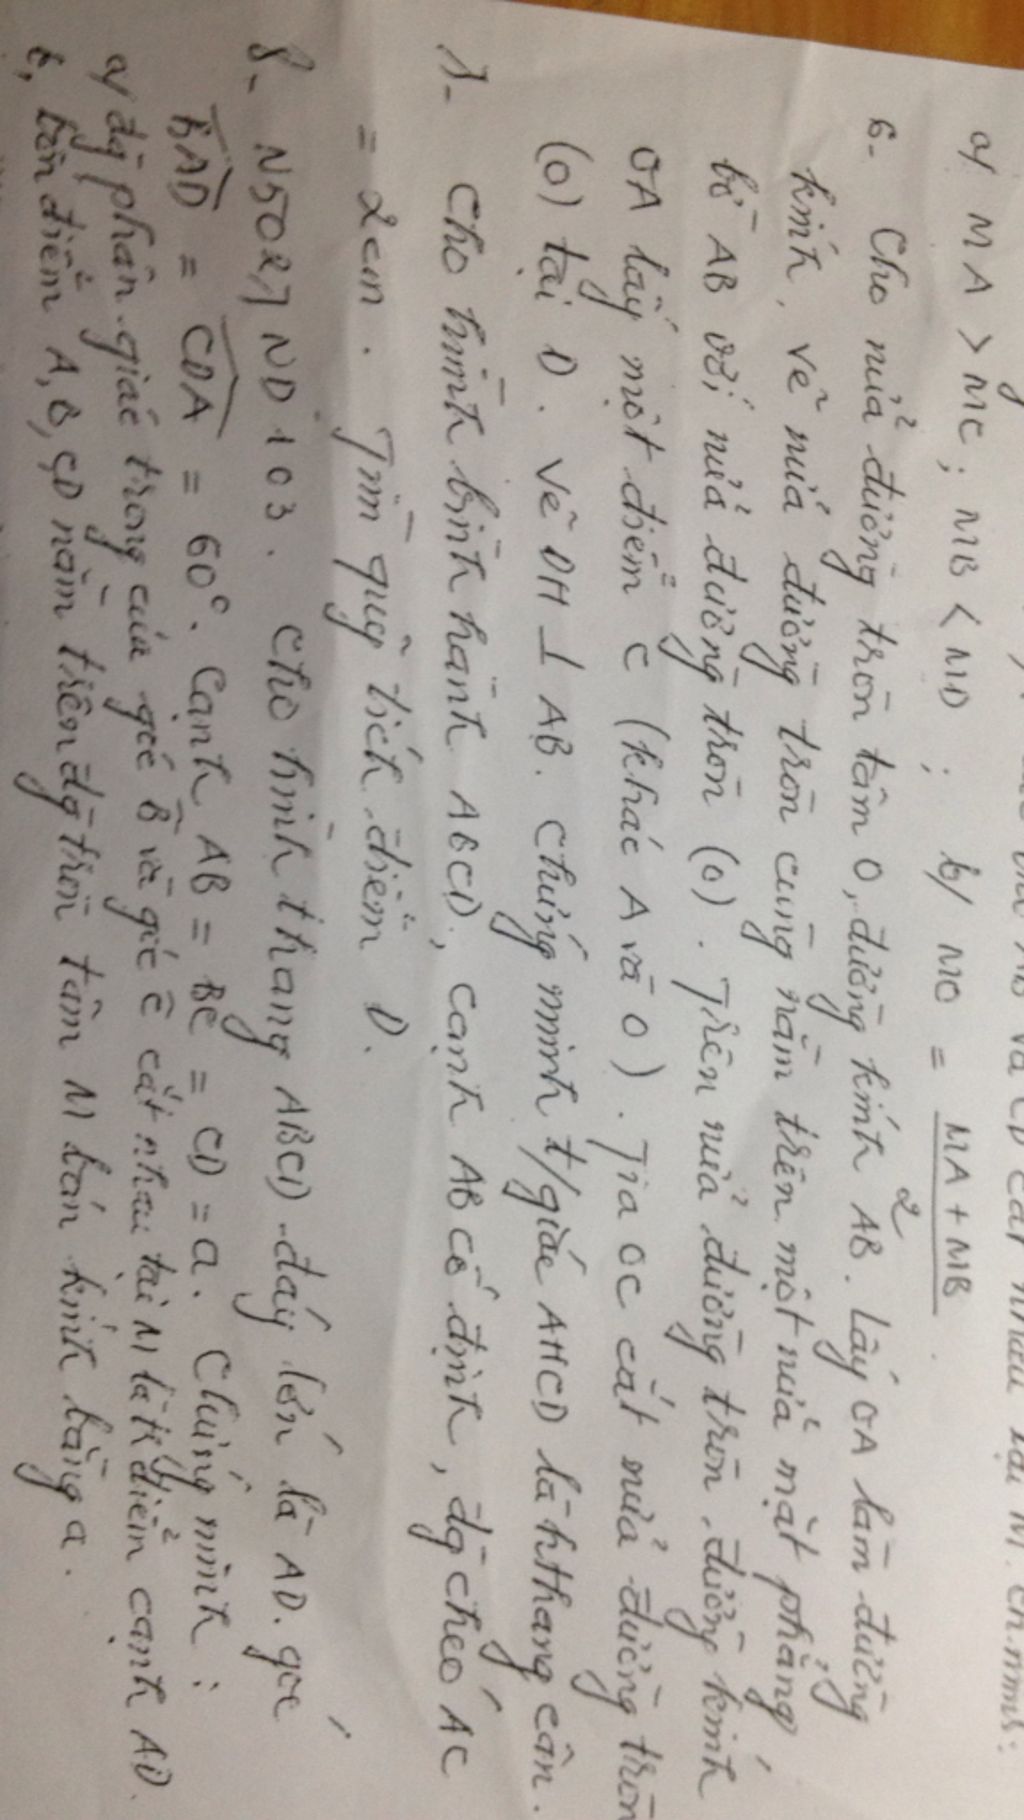 AB và CD cắt nhau tại M. CMMS:
a/ MA > MC; MB < MD; b/ MO = MA + MB
2
6- Cho nửa đường tròn tâm O, đường kính AB. Lấy OA làm đường
kính, vẽ nửa đường tròn cùng nằm trên một nửa mặt phẳng
bờ AB với nửa đường tròn (O). Trên nửa đường tròn đường kính
OA lấy một điểm C (khác A và O). Tia OC cắt nửa đường tròn
(O) tại D. Vẽ DH ⊥ AB. Chứng minh t/giác AHCD là hthang cân.
7- Cho hình bình hành ABCD, cạnh AB cố định, đg chéo AC
= 2cm. Tìm quỹ tích điểm D.
8- N5027 ND 103. Cho hình thang ABCD đáy lớn là AD. góc
BAD = CDA = 60°. Cạnh AB = BC = CD = a. Chứng minh:
a/ đg phân giác trong của góc B và góc C cắt nhau tại M là tr điểm cạnh AD.
b, bốn điểm A, B, C, D nằm trên đg tròn tâm M bán kính bằng a.